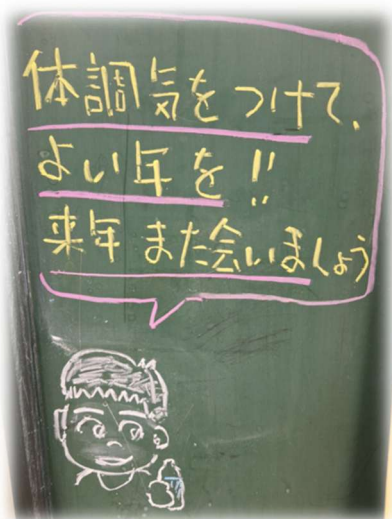 体調気をつけて、
よい年を!!
来年また会いましょう